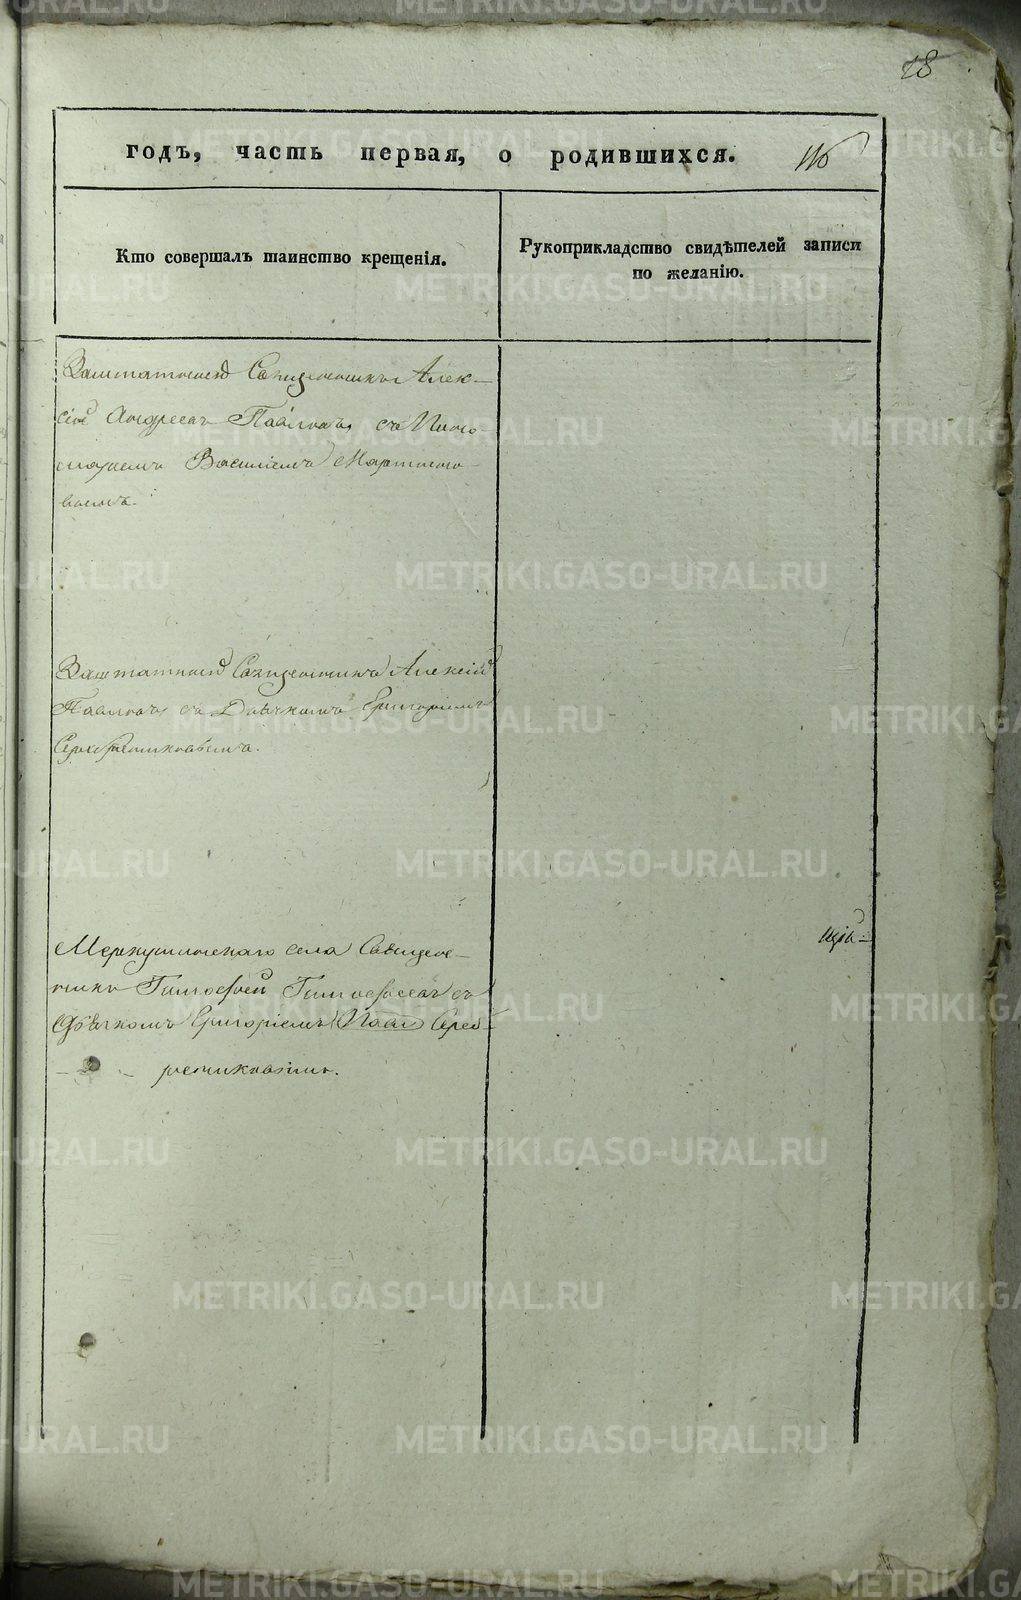 18
годъ, часть первая, о родившихся. 116
Кто совершалъ таинство крещенія.
Рукоприкладство свидѣтелей записи
по желанію.
Заштатной Священникъ Алек-
сій Андреевъ Павловъ съ Поно-
маремъ Василіемъ Мартино-
вымъ.
Заштатной Священникъ Алексій
Павловъ съ Дьячкомъ Григоріемъ
Серебрениковымъ.
Меркушинскаго села Священ-
никъ Тимофей съ
Дьячкомъ Григоріемъ Павл Сереб-
рениковымъ.
METRIKI.GASO-URAL.RU